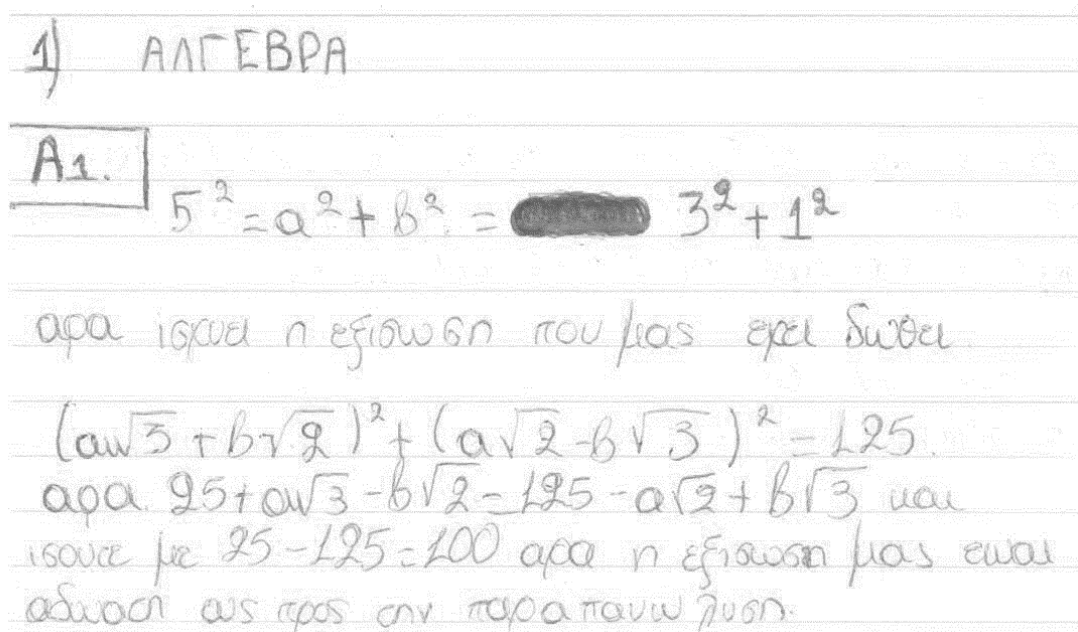 1) ΑΛΓΕΒΡΑ
A1.
5² = a² + b² = 3² + 1²
αρα ισχυει η εξισωση που μας εχει δωθει.
(a√3 + b√2)² + (a√2 - b√3)² = 125.
αρα 25 + a√3 - b√2 = 125 - a√2 + b√3 και
ισουτε με 25 - 125 = 100 αρα η εξισωση μας ειναι
αδυνατη ως προς την παραπανω λυση.